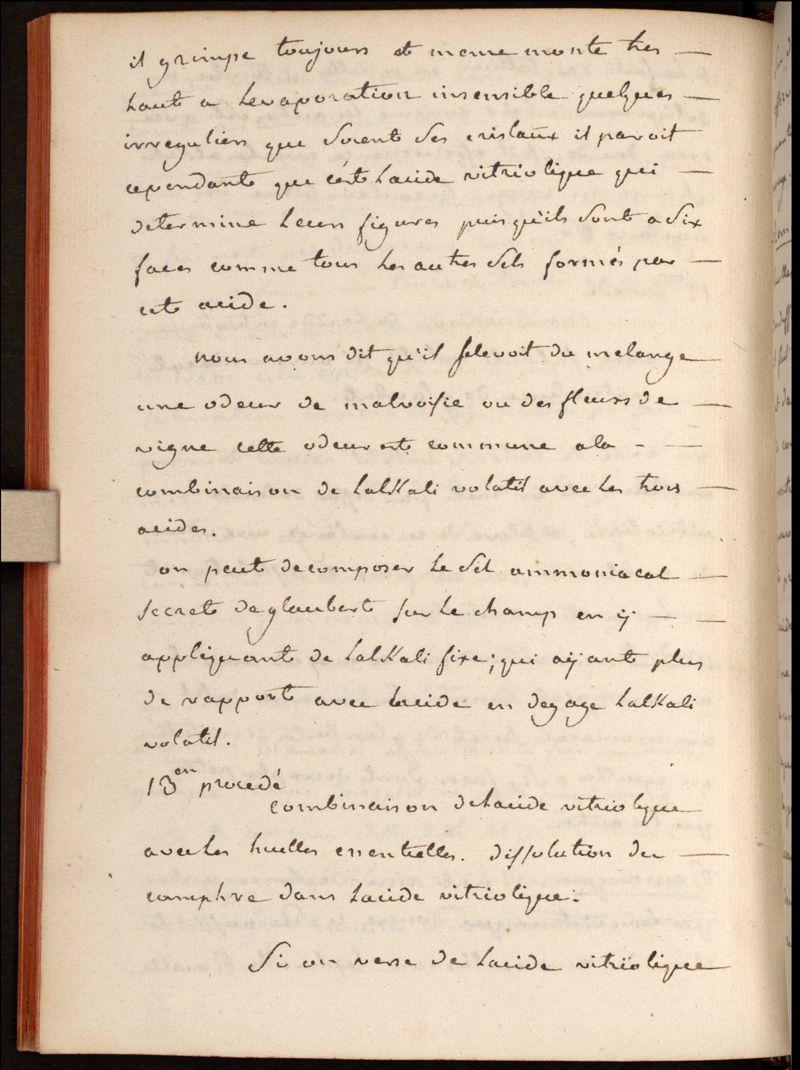 il grimpe toujours et meme monte tres —
haut a levaporation insensible quelques —
irreguliers que soient ses cristaux il paroit
cependant que cést lacide vitriolique qui —
determine leurs figures puisqu'ils sont a six
faces comme tous les autres sels formés par —
cet acide.
nous avons dit qu'il selevoit du melange
une odeur de malvoisie ou des fleurs de —
vigne cette odeur est commune a la - —
combinaison de lalkali volatil avec les trois —
acides.
on peut decomposer le sel ammoniacal —
secret de glaubert sur le champ en ÿ — —
appliquant de lalkali fixe; qui aÿant plus
de rapport avec lacide en degage lalkali
volatil.
13en procedé
combinaison de lacide vitriolique
avec les huilles essentielles. dissolution du —
camphre dans lacide vitriolique.
Si on verse de lacide vitriolique